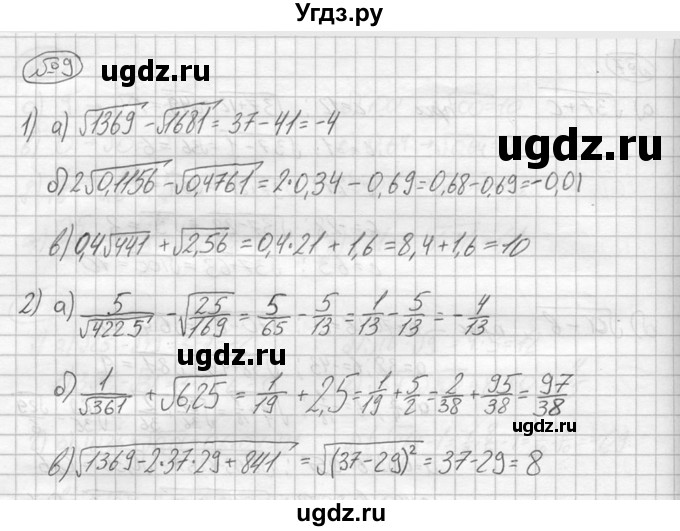 Угдз.ру
№9
ugdz.ru
1) а) √1369 - √1681 = 37 - 41 = -4
ugdz.ru
б) 2√0,1156 - √0,4761 = 2·0,34 - 0,69 = 0,68 - 0,69 = -0,01
ugdz.ru
в) 0,4√441 + √2,56 = 0,4·21 + 1,6 = 8,4 + 1,6 = 10
2) а) 5/√4225 - √25/169 = 5/65 - 5/13 = 1/13 - 5/13 = -4/13
ugdz.ru
б) 1/√361 + √6,25 = 1/19 + 2,5 = 1/19 + 5/2 = 2/38 + 95/38 = 97/38
ugdz.ru
в) √1369 - 2·37·29 + 841 = √(37 - 29)² = 37 - 29 = 8
ugdz.ru
ugdz.ru